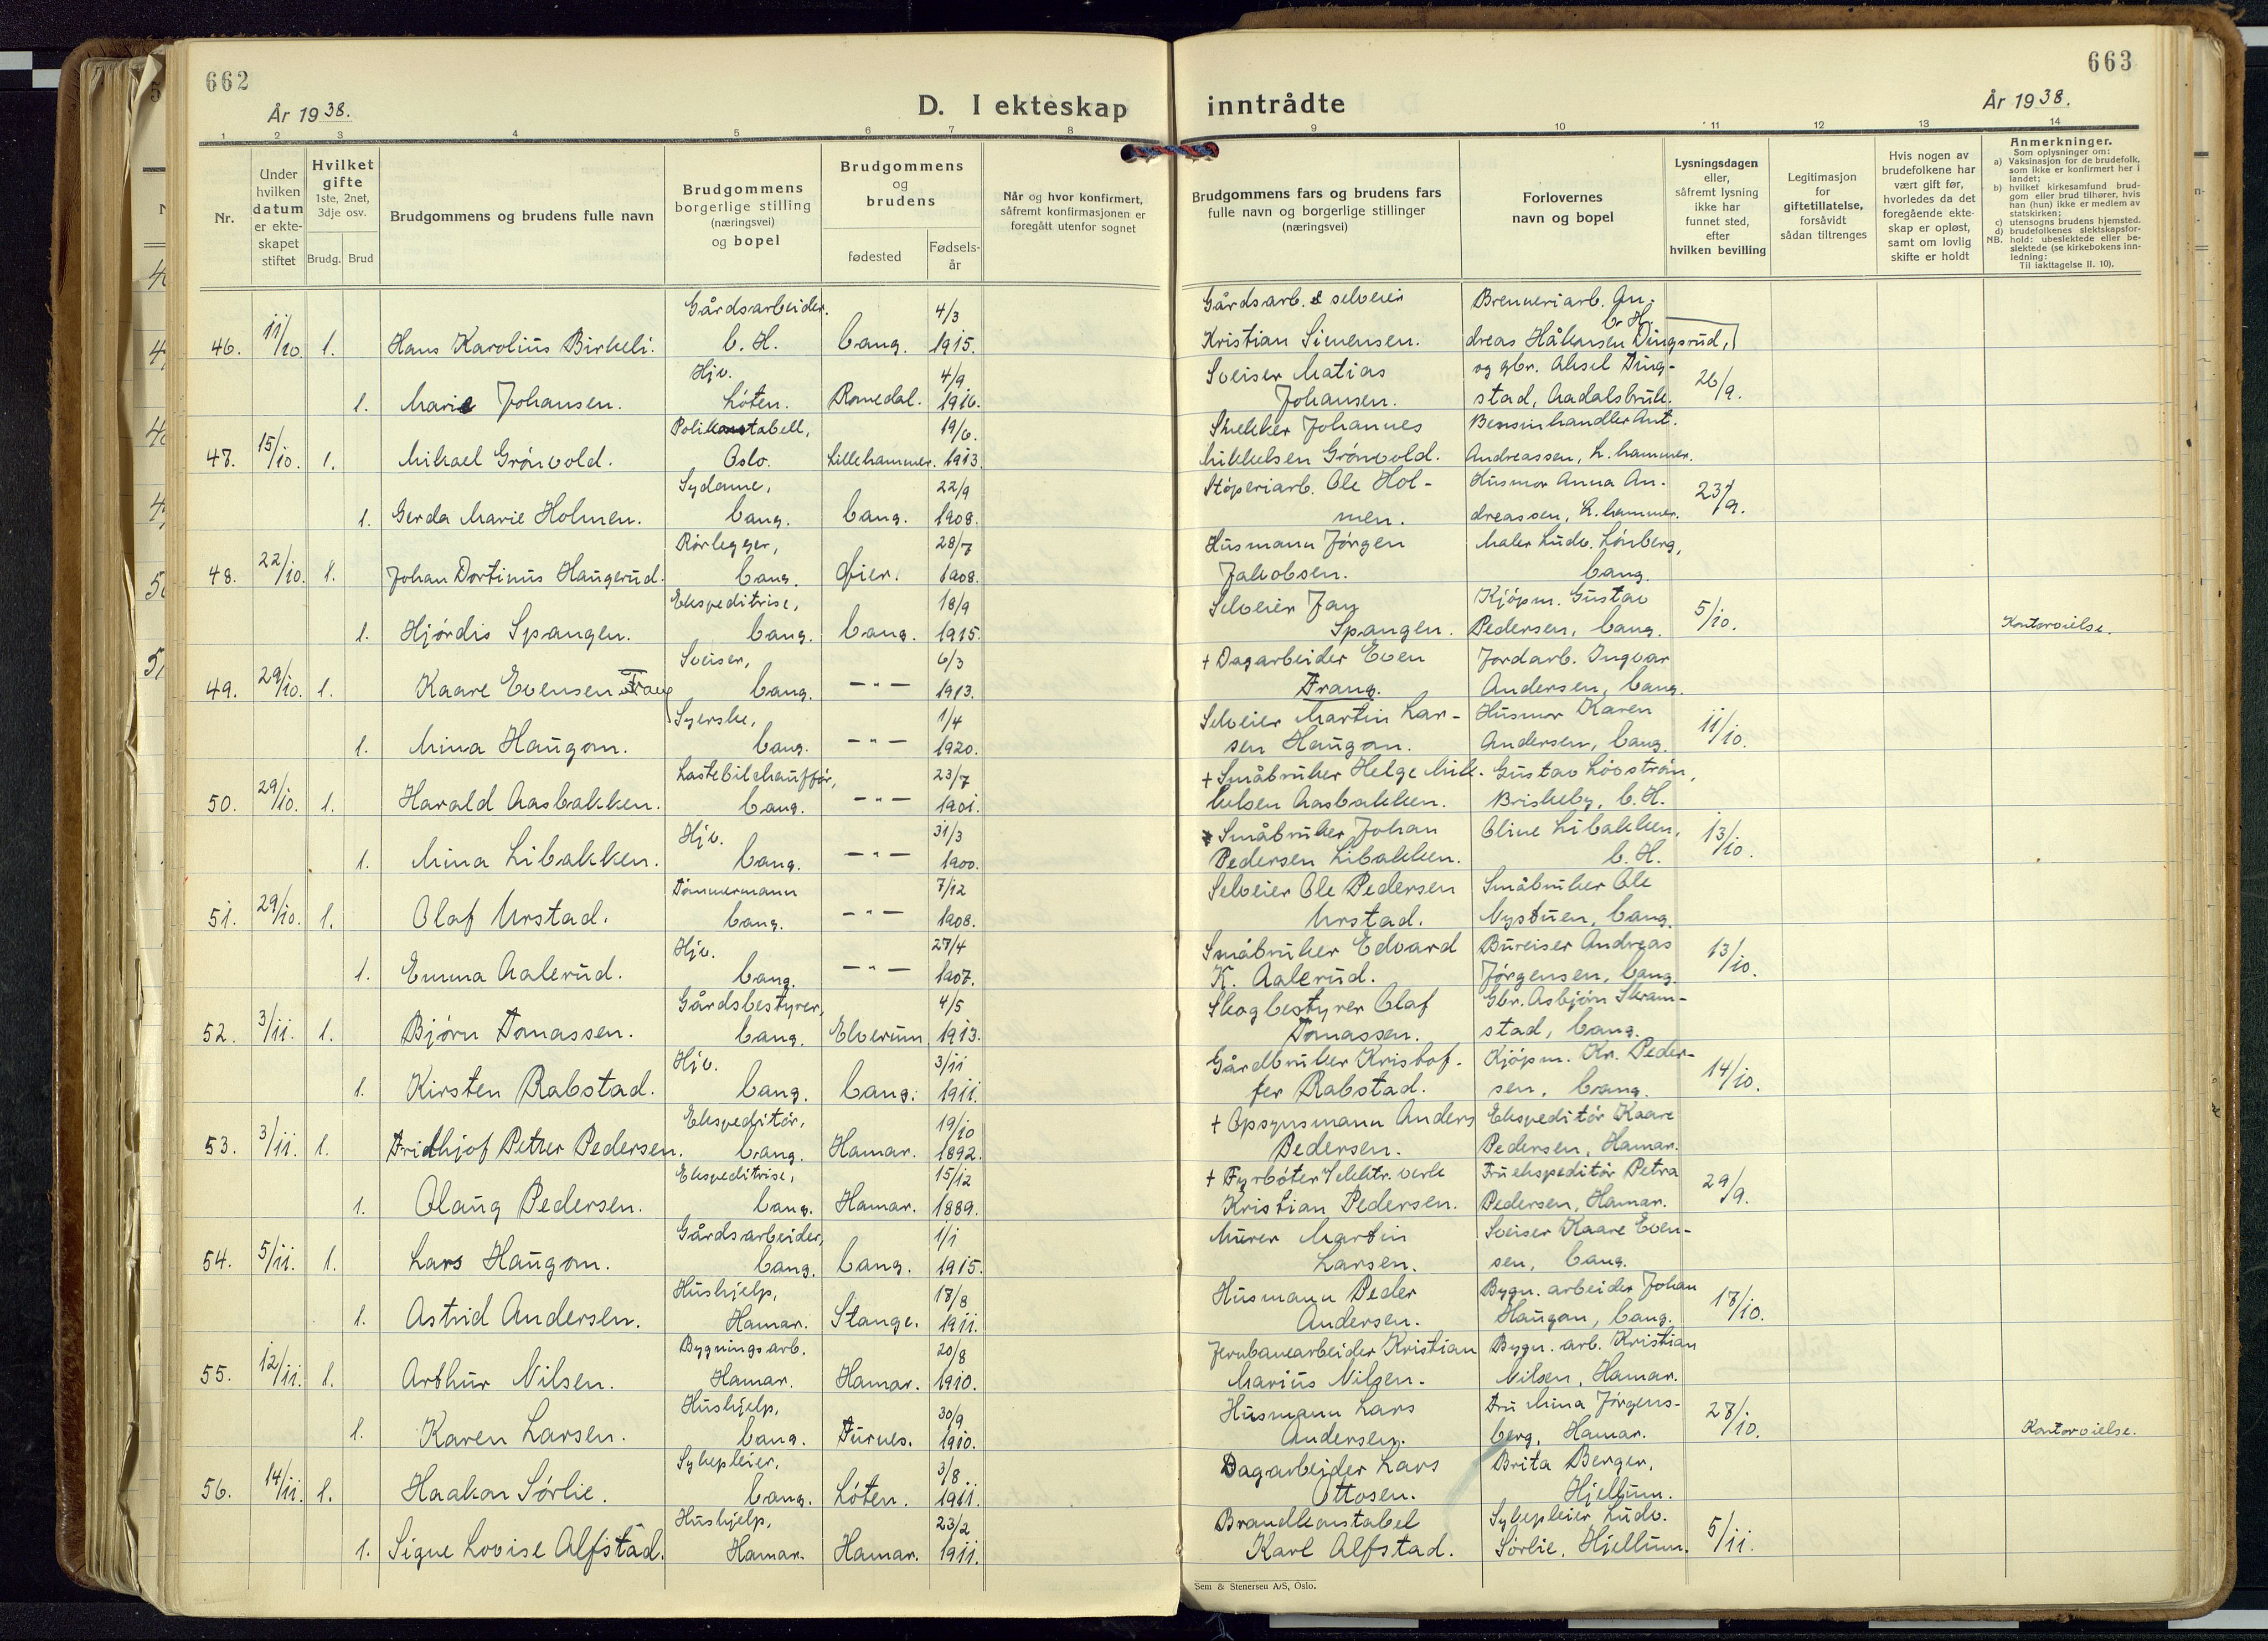 662
År 1938.
D. I ekteskap
inntrådte
663
År 1938.
1 2 3 4 5 6 7 8 9 10 11 12 13 14
Nr.
Under
hvilken
datum
er ekte-
skapet
stiftet
Hvilket
gifte
1ste, 2net,
3dje osv.
Brudg. Brud
Brudgommens og brudens fulle navn
Brudgommens
borgerlige stilling
(næringsvei)
og bopel
Brudgommens
og
brudens
fødested
Fødsels-
år
Når og hvor konfirmert,
såfremt konfirmasjonen er
foregått utenfor sognet
Brudgommens fars og brudens fars
fulle navn og borgerlige stillinger
(næringsvei)
Forlovernes
navn og bopel
Lysningsdagen
eller,
såfremt lysning
ikke har
funnet sted,
efter
hvilken bevilling
Legitimasjon
for
giftetillatelse,
forsåvidt
sådan tiltrenges
Hvis nogen av
brudefolkene har
vært gift før,
hvorledes da det
foregående ekte-
skap er opløst,
samt om lovlig
skifte er holdt
Anmerkninger.
Som oplysninger om:
a) Vaksinasjon for de brudefolk,
som ikke er konfirmert her i
landet;
b) hvilket kirkesamfund brud-
gom eller brud tilhører, hvis
han (hun) ikke er medlem av
statskirken;
c) utensogns brudens hjemsted.
d) brudefolkenes slektskapsfor-
NB. hold: ubeslektede eller be-
slektede (se kirkebokens inn-
ledning:
Til iakttagelse II. 10).
Gårdsarbeider. 4/3 Gårdsarb. & selveier Brenneriarb. An-
46. 11/10 1. Hans Karolius Birkeli. V. H. Vang. 1915. Kristian Simensen. dreas Håkensen Dingsrud, V. H.
Hjv. 4/9 Sveiser Matias og gbr. Aksel Ding-
1. Marie Johansen. Løten. Romedal. 1916. Johansen. stad, Aadalsbruk. 26/9.
Politikonstabell, 19/6. Snekker Johannes Bensinhandler Ant.
47. 15/10. 1. Mikael Grönvold. Oslo. Lillehammer. 1913. Mikkelsen Grönvold. Andreassen, L.hammer.
Sydame, 22/9 Støperiarb. Ole Hol- Husmor Anna An-
1. Gerda Marie Holmen. Vang. Vang. 1908. men. dreassen, L.hammer. 23/9.
Rørlegger, 28/7 Husmann Jørgen Maler Ludv. Lönberg,
48. 22/10. 1. Johan Dortinus Haugerud. Vang. Øier. 1908. Jakobsen. Vang.
Ekspeditrise, 18/9 Selveier Jan Kjøpm. Gustav
1. Hjördis Spangen. Vang. Vang. 1915. Spangen. Pedersen, Vang. 5/10. Kontorvielse.
Sveiser, 6/3 + Dagarbeider Even Jordarb. Ingvar
49. 29/10. 1. Kaare Evensen Frang Vang. —"— 1913. Frang. Andersen, Vang.
Syerske, 1/4 Selveier Martin Lar- Husmor Karen
1. Mina Haugom. Vang. —"— 1920. sen Haugom. Andersen, Vang. 11/10.
Lastebilchauffør, 23/7 + Småbruker Helge Mik- Gustav Lövström,
50. 29/10. 1. Harald Aasbakken. Vang. —"— 1901. kelsen Aasbakken. Briskeby, V. H.
Hjv. 31/3 Småbruker Johan Oline Libakken,
1. Mina Libakken. Vang. —"— 1900. Pedersen Libakken. V. H. 13/10.
Tömmermann 7/12 Selveier Ole Pedersen Småbruker Ole
51. 29/10. 1. Olaf Urstad. Vang. —"— 1908. Urstad. Nystuen, Vang.
Hjv. 27/4 Småbruker Edvard Bureiser Andreas
1. Emma Aalerud. Vang. —"— 1907. K. Aalerud. Jørgensen, Vang. 13/10.
Gårdsbestyrer, 4/5 Skogbestyrer Olaf Gbr. Asbjörn Skram-
52. 3/11. 1. Björn Tomassen. Vang. Elverum. 1913. Tomassen. stad, Vang.
Hjv. 3/11 Gårdbruker Kristof- Kjøpm. Kr. Peder-
1. Kirsten Rabstad. Vang. Vang. 1911. fer Rabstad. sen, Vang. 14/10.
Ekspeditör, 19/10 + Opsynsmann Anders Ekspeditör Kaare
53. 3/11. 1. Fridthjof Petter Pedersen. Vang. Hamar. 1892. Pedersen. Pedersen, Hamar.
Ekspeditrise, 15/12 + Fyrböter v/elektr. verk Fru ekspeditör Petra
1. Olaug Pedersen. Vang. Hamar. 1889. Kristian Pedersen. Pedersen, Hamar. 29/9.
Gårdsarbeider, 1/1 Murer Martin Sveiser Kaare Even-
54. 5/11. 1. Lars Haugom. Vang. Vang. 1915. Larsen. sen, Vang.
Hushjelp, 17/8 Husmann Peder Bygn. arbeider Johan
1. Astrid Andersen. Hamar. Stange. 1911. Andersen. Haugom, Vang. 17/10.
Bygningsarb. 20/8 Jernbanearbeider Kristian Bygn. arb. Kristian
55. 12/11. 1. Arthur Nilsen. Hamar. Hamar. 1910. Marius Nilsen. Nilsen, Hamar.
Hushjelp, 30/9 Husmann Lars Fru Mina Jørgens-
1. Karen Larsen. Vang. Furnes. 1910. Andersen. berg, Hamar. 27/10. Kontorvielse.
Sykepleier, 3/8. Dagarbeider Lars Brita Berger,
56. 14/11. 1. Haakon Sörlie. Vang. Løten. 1911. Ottosen. Hjellum.
Hushjelp, 23/2 Brandkonstabel Sykepleier Ludv.
1. Signe Lovise Alfstad. Hamar. Hamar. 1911. Karl Alfstad. Sörlie, Hjellum. 5/11.
Sem & Stenersen A/S, Oslo.